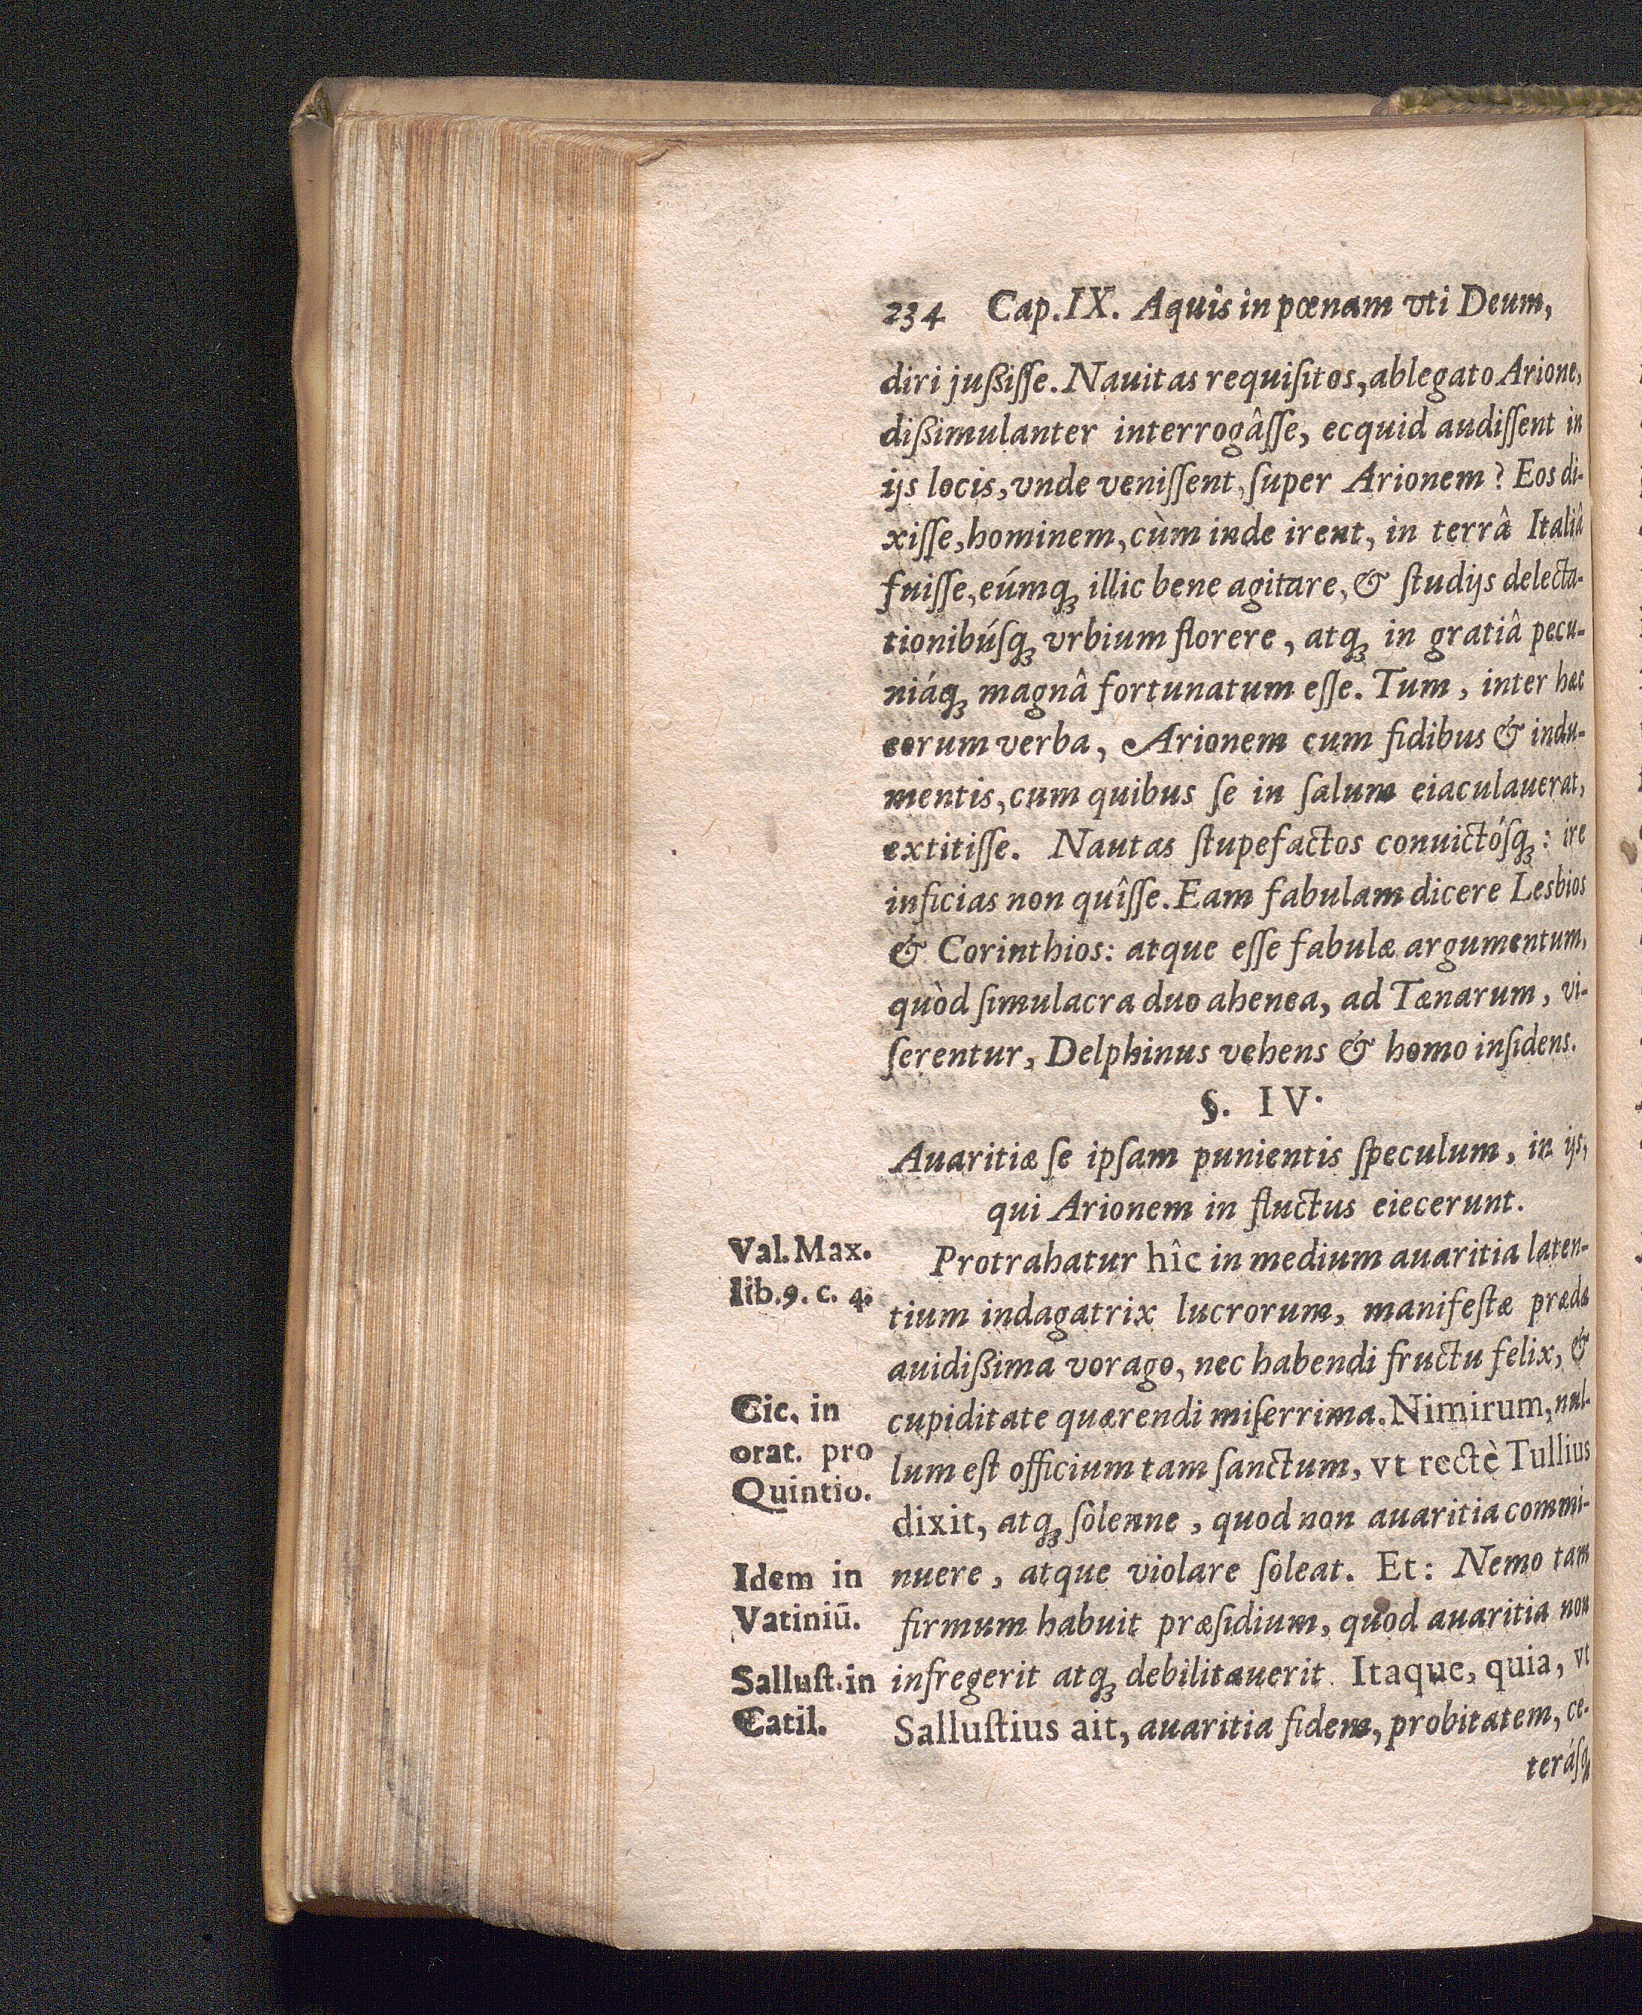 234 Cap. IX. Aquis in pœnam vti Deum,
diri jußiſſe. Nauitas requiſitos, ablegato Arione,
dißimulanter interrogâſſe, ecquid audiſſent in
ijs locis, vnde veniſſent, ſuper Arionem? Eos di-
xiſſe, hominem, cùm inde irent, in terrâ Italiâ
fuiſſe, eúmq́ue illic bene agitare, & ſtudijs delecta-
tionibúſq; vrbium florere, atq; in gratiâ pecu-
niáq; magnâ fortunatum eſſe. Tum, inter hæc
eorum verba, Arionem cum fidibus & indu-
mentis, cum quibus ſe in ſalum eiaculauerat,
extitiſſe. Nautas ſtupefactos conuictóſq;: ire
inficias non quîſſe. Eam fabulam dicere Lesbios
& Corinthios: atque eſſe fabulæ argumentum,
quòd ſimulacra duo ahenea, ad Tænarum, vi-
ſerentur, Delphinus vehens & homo inſidens.
§. IV.
Auaritiæ ſe ipſam punientis ſpeculum, in ijs,
qui Arionem in fluctus eiecerunt.
Val. Max.
lib. 9. c. 4.
Protrahatur hîc in medium auaritia laten-
tium indagatrix lucrorum, manifeſtæ prædæ
auidißima vorago, nec habendi fructu felix, &
Cic. in
orat. pro
Quintio.
cupiditate quærendi miſerrima. Nimirum, nul-
lum eſt officium tam ſanctum, vt rectè Tullius
dixit, atq; ſolenne, quod non auaritia commi-
Idem in
Vatiniū.
nuere, atque violare ſoleat. Et: Nemo tam
firmum habuit præſidium, quod auaritia non
Salluſt. in
Catil.
infregerit atq; debilitauerit. Itaque, quia, vt
Salluſtius ait, auaritia fidem, probitatem, ce-
teráſq;